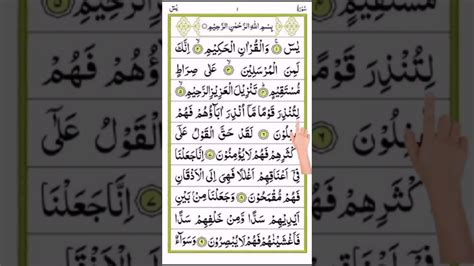 سُوْرَةُ ١ يٰسٓ
بِسْمِ اللّٰهِ الرَّحْمٰنِ الرَّحِيْمِ
يٰسٓ ۚ ۱ وَالْقُرْاٰنِ الْحَكِيْمِ ۙ ۲ اِنَّكَ
لَمِنَ الْمُرْسَلِيْنَ ۙ ۳ عَلٰى صِرَاطٍ
مُّسْتَقِيْمٍ ؕ ۴ تَنْزِيْلَ الْعَزِيْزِ الرَّحِيْمِ ۙ ۵
لِتُنْذِرَ قَوْمًا مَّاۤ اُنْذِرَ اٰبَآؤُهُمْ فَهُمْ
غٰفِلُوْنَ ۶ لَقَدْ حَقَّ الْقَوْلُ عَلٰۤى
اَكْثَرِهِمْ فَهُمْ لَا يُؤْمِنُوْنَ ۷ اِنَّا جَعَلْنَا
فِيْۤ اَعْنَاقِهِمْ اَغْلٰلًا فَهِيَ اِلَى الْاَذْقَانِ
فَهُمْ مُّقْمَحُوْنَ ۸ وَجَعَلْنَا مِنْۢ بَيْنِ
اَيْدِيْهِمْ سَدًّا وَّمِنْ خَلْفِهِمْ سَدًّا
فَاَغْشَيْنٰهُمْ فَهُمْ لَا يُبْصِرُوْنَ ۹ وَسَوَآءٌ